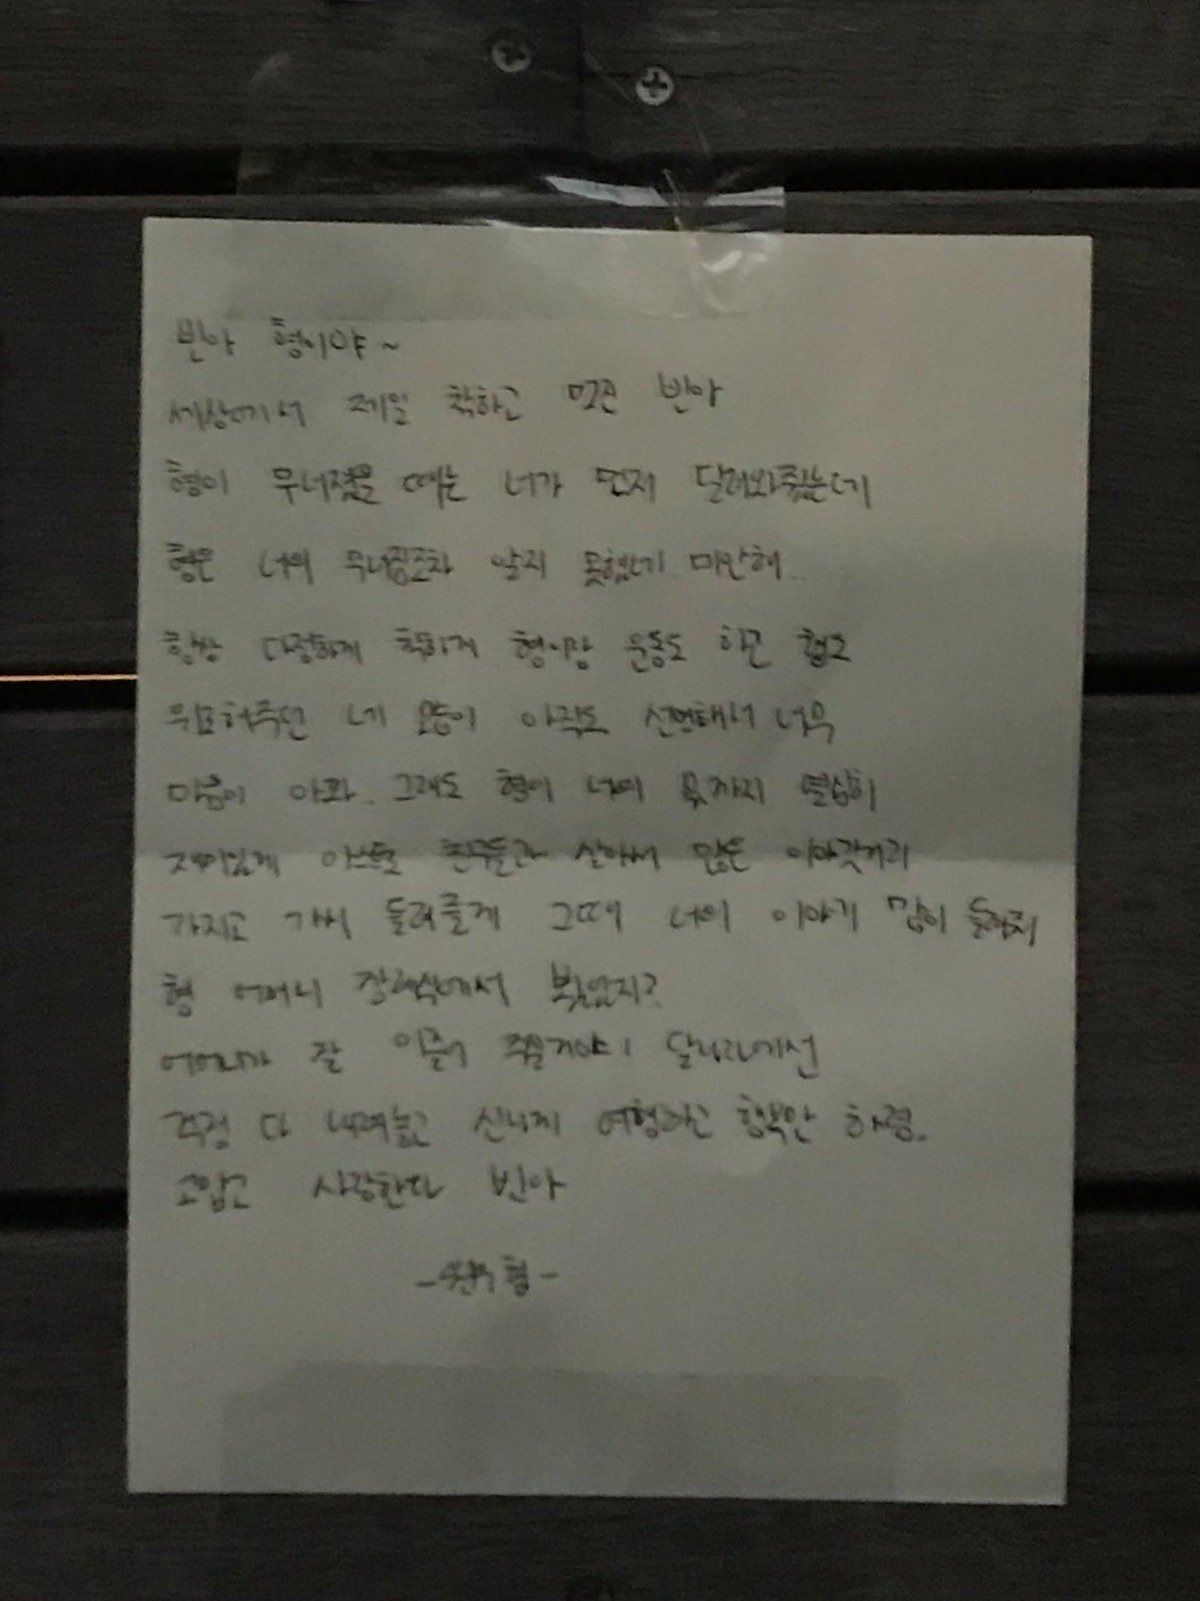 빈아 형이야~
세상에서 제일 착하고 멋진 빈아
형이 무너졌을 때는 너가 먼저 달려와줬는데
형은 너의 무너짐조차 알지 못했네. 미안해..
항상 다정하게 착하게 형이랑 운동도 하고 형을
위로해주던 네 모습이 아직도 선명해서 너무
마음이 아파. 그래도 형이 너의 몫까지 열심히
재미있게 아스트로 친구들과 살아서 많은 이야깃거리
가지고 가서 들려줄게 그때 너의 이야기 많이 들려줘
형 어머니 장례식에서 봤었지?
어머니가 잘 이끌어 주실거야! 달나라에선
걱정 다 내려놓고 신나게 여행하고 행복만 하렴.
고맙고 사랑한다 빈아
- 형 -